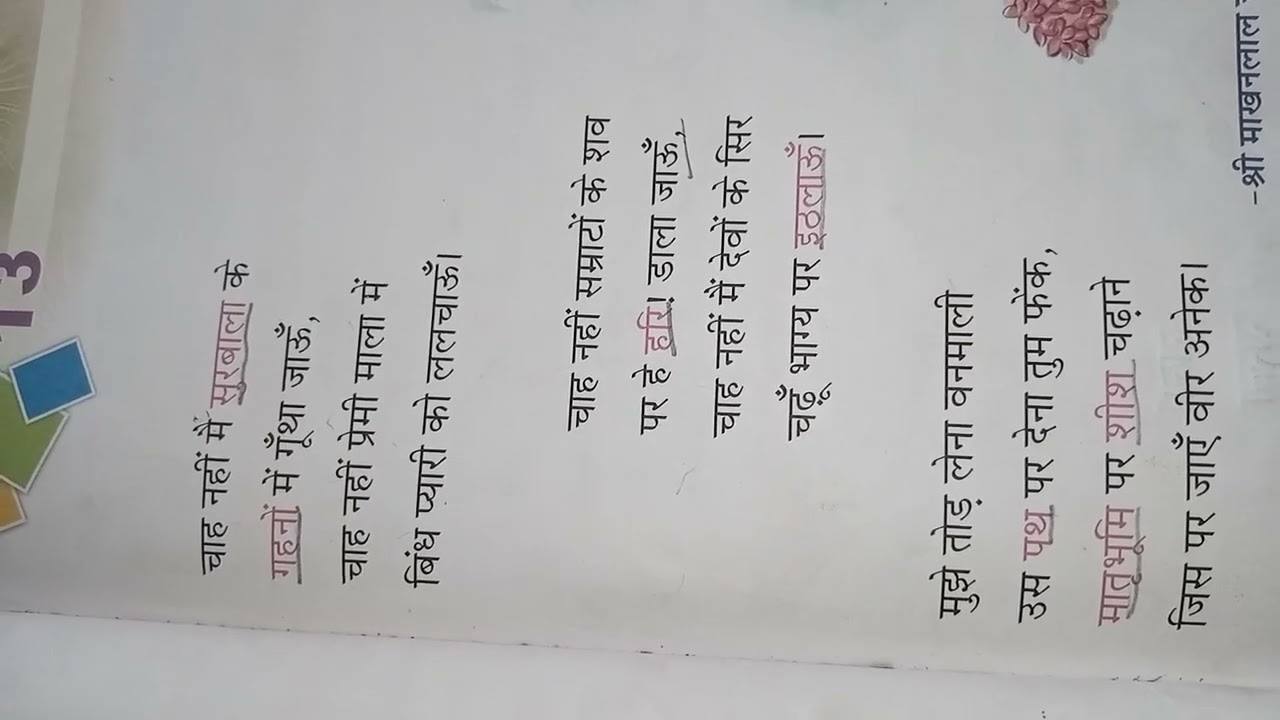 13
चाह नहीं मैं सुरबाला के
गहनों में गूँथा जाऊँ,
चाह नहीं प्रेमी माला में
बिंध प्यारी को ललचाऊँ।
चाह नहीं सम्राटों के शव
पर हे हरि! डाला जाऊँ,
चाह नहीं मैं देवों के सिर
चढ़ूँ भाग्य पर इठलाऊँ।
मुझे तोड़ लेना वनमाली
उस पथ पर देना तुम फेंक,
मातृभूमि पर शीश चढ़ाने
जिस पर जाएँ वीर अनेक।
-श्री माखनलाल